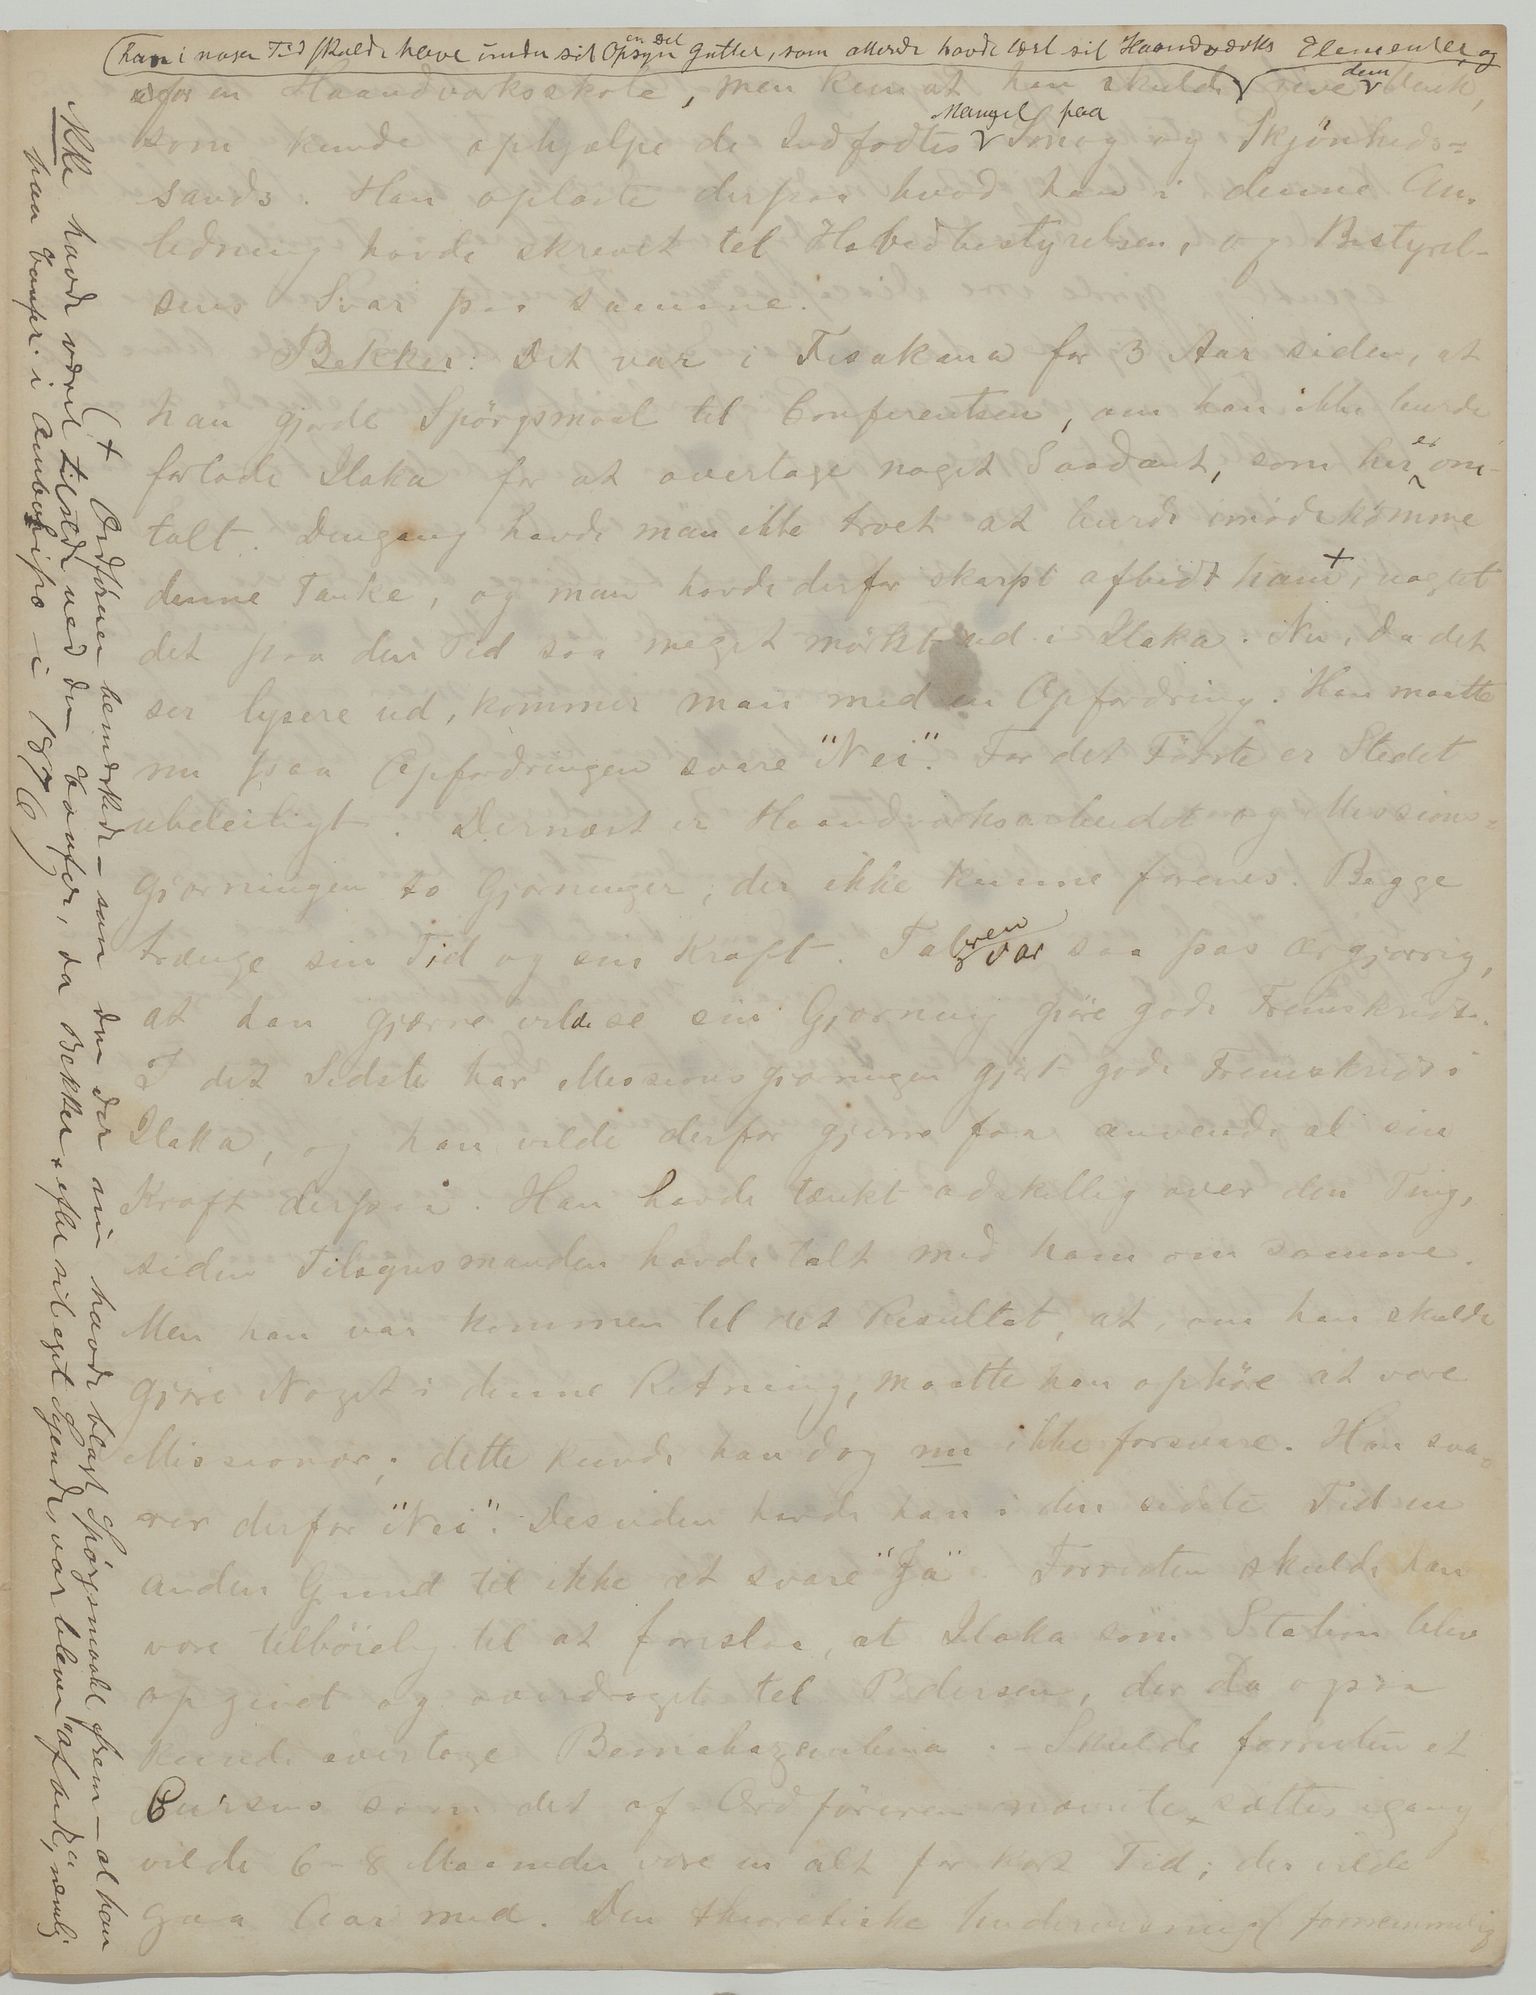 han i nogen Tid skulde have under sit Opsyn en Del Gutter, som allerede havde lært sit Haandværks Elementer, og
for en Haandværksskole, men kun at han skulde give dem Vink,
som kunde ophjælpe de Indfødtes Mangel paa Smag og Skjönheds=
sands. Han oplæste derpaa hvad han i denne An-
ledning havde skrevet til Hovedbestyrelsen, og Bestyrel-
sens Svar paa samme.
Bekker: Det var i Fisakana for 3 Aar siden, at
han gjorde Spörgsmaal til Conferentsen, om han ikke burde
forlade Ilaka for at overtage noget Saadant, som her er om-
talt. Dengang havde man ikke troet at burde imödekomme
denne Tanke, og man havde derfor skarpt afbidt ham +, uagtet
det paa den Tid saa meget mörkt ud i Ilaka. Nu, da det
ser lysere ud, kommer man med en Opfordring. Han maatte
nu paa Opfordringen svare "Nei". For det Förste er Stedet
ubeleiligt. Dernæst er Haandværksarbeidet og Missions=
gjerningen to Gjerninger, der ikke kunne forenes. Begge
trænge sin Tid og sin Kraft. Taleren var saa pas ærgjerrig,
at han gjerne vilde se sin Gjerning gjöre gode Fremskridt.
I det Sidste har Missionsgjerningen gjort gode Fremskridt i
Ilaka, og han vilde derfor gjerne faa anvende al sin
Kraft derpaa. Han havde tænkt adskillig over den Ting,
siden Tilsynsmanden havde talt med ham om samme.
Men han var kommen til det Resultat, at, om han skulde
gjöre Noget i denne Retning, maatte han ophöre at være
Missionær; dette kunde han dog nu ikke forsvare. Han sva-
rer derfor "Nei". Desuden havde han i den sidste Tid en
anden Grund til ikke at svare "Ja". Forresten skulde han
være tilböielig til at foreslaa, at Ilaka som Station blev
opgivet og overdraget til Pedersen, der da ogsaa
kunde overtage Bemahazembina. - Skulde forresten et
Cursus som det af Ordföreren nævnte sættes igang
vilde 6-8 Maaneder være en alt for kort Tid; der vilde
gaa Aar med. Den theoretiske Undervisning fornemmelig
(+ Ordföreren bemærkede - som den der nu havde bragt Spörgsmaalet frem - at han
ikke havde været tilstede ved den Confer., da Bekker, efter sit eget Sigende, var bleven "afbidt", nemlig
paa Confr. i Ambohipo - i 1876)